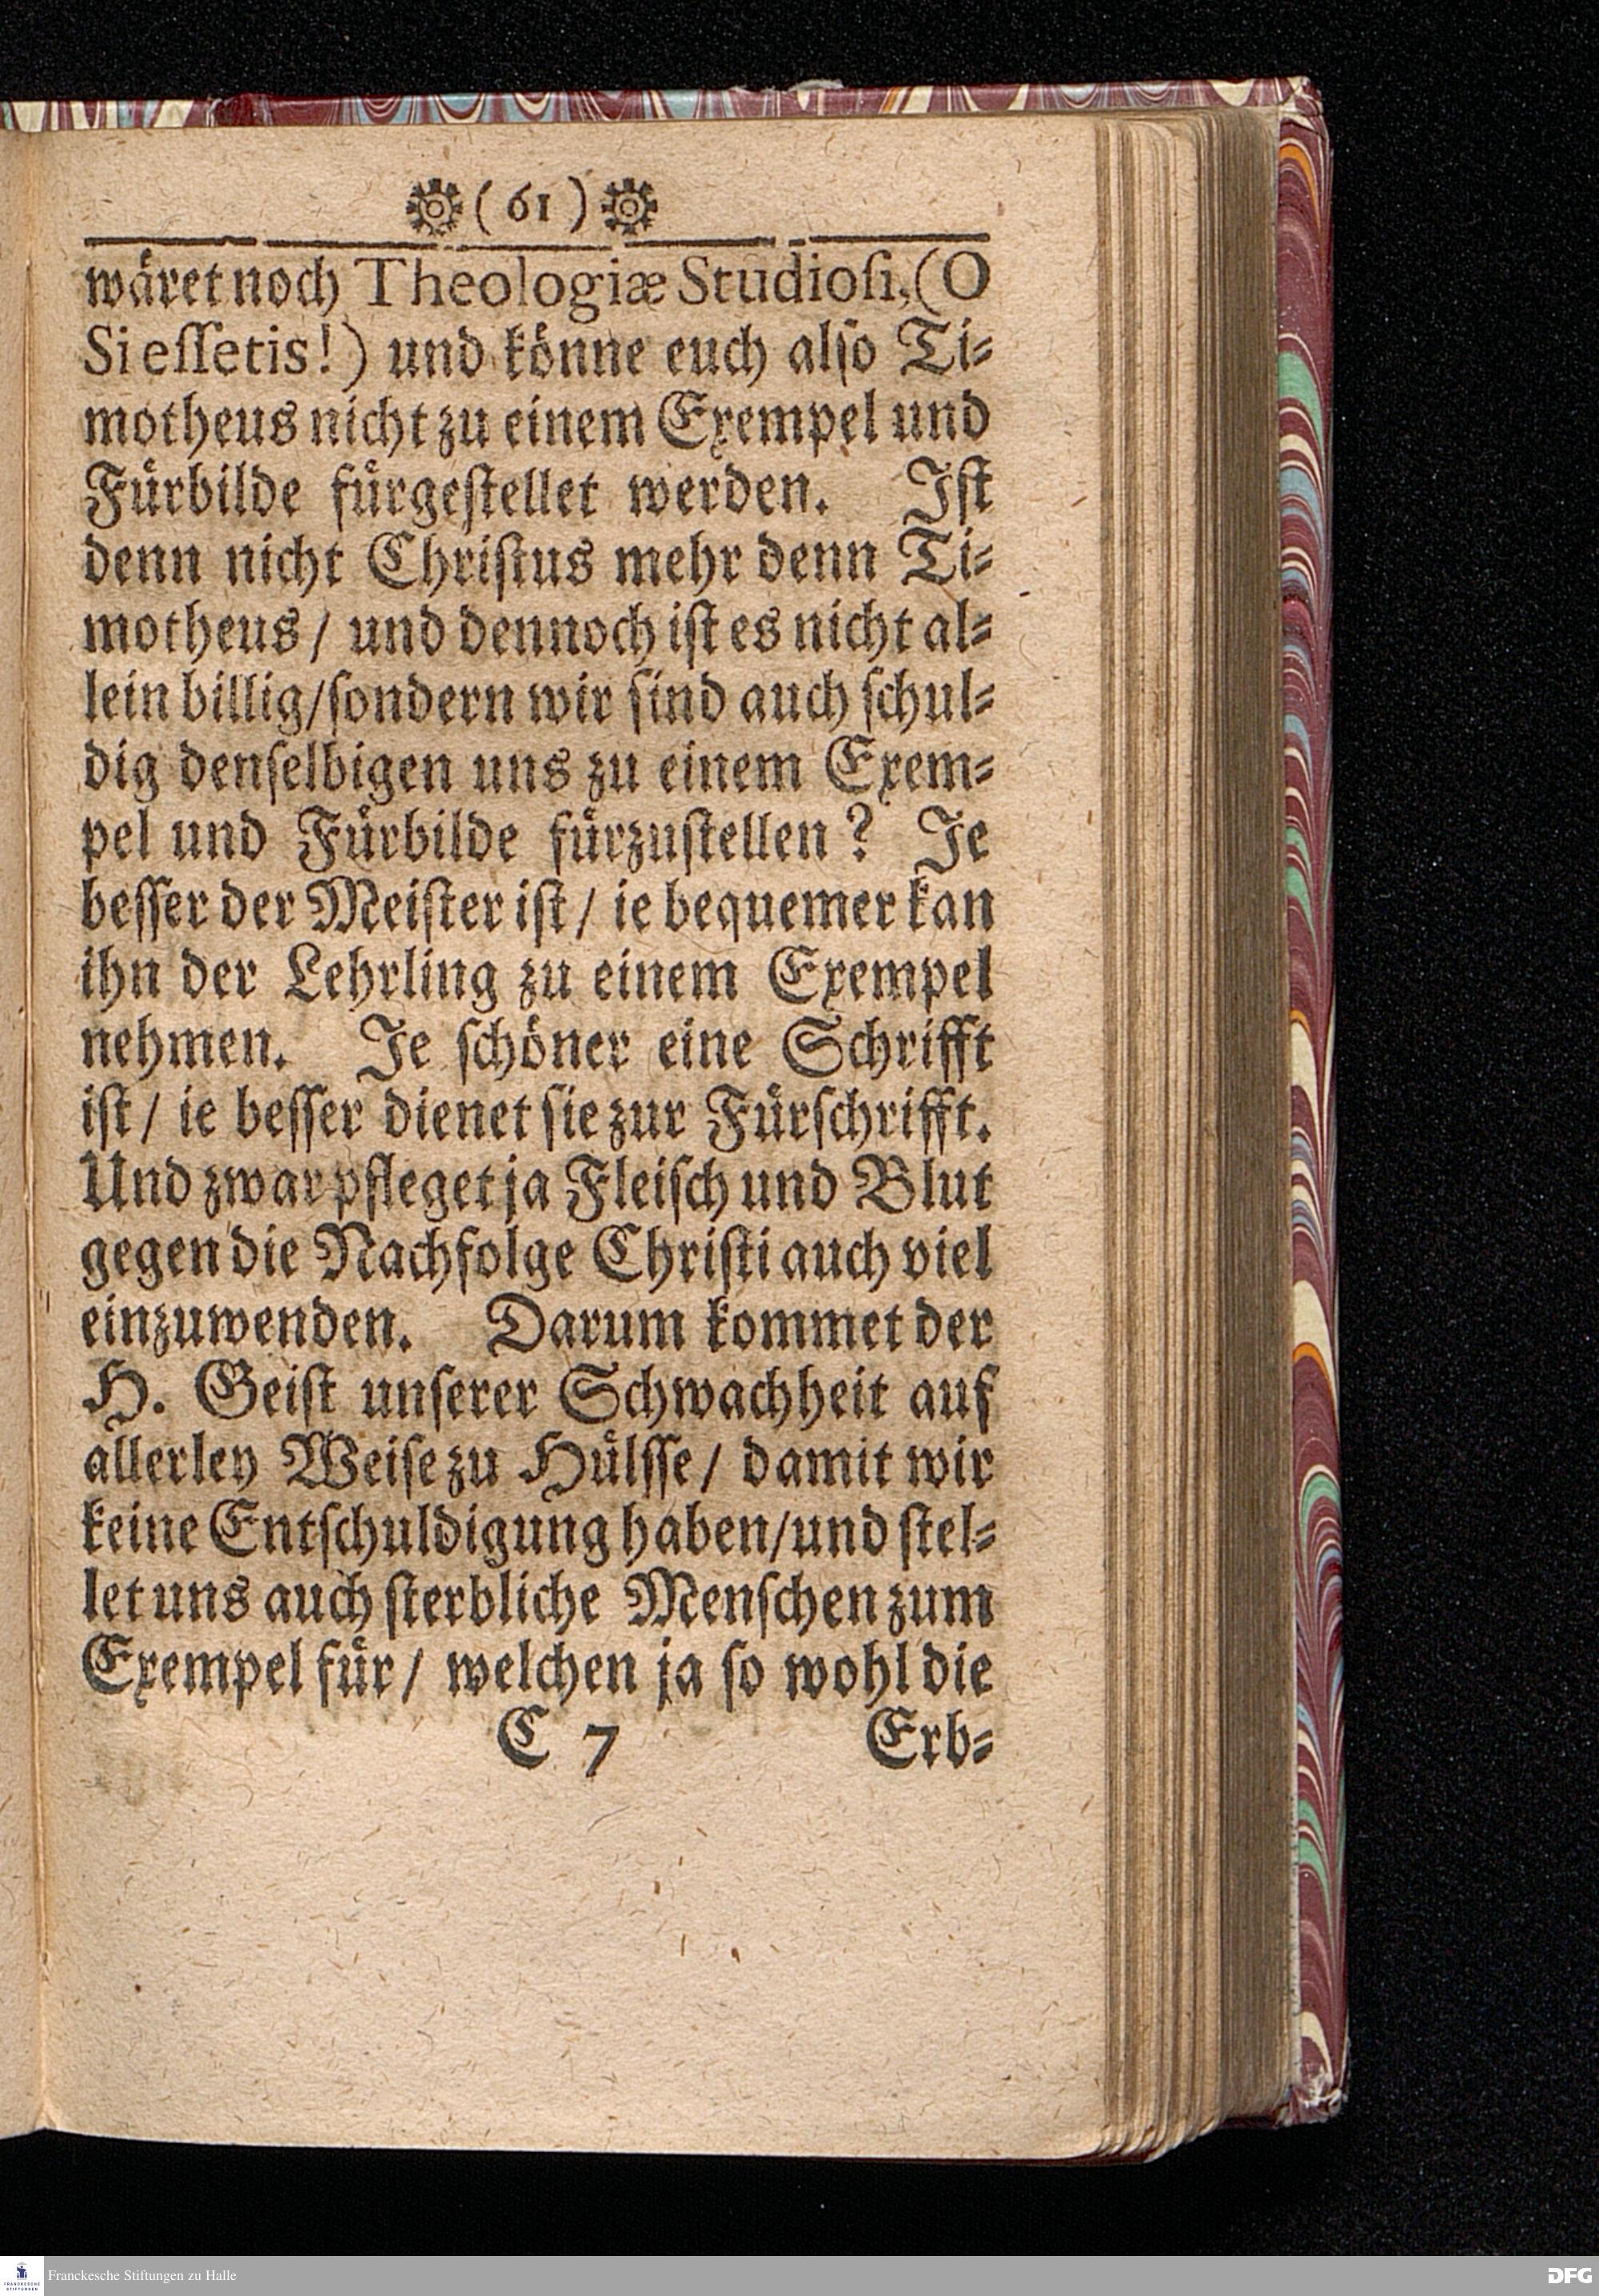 ( 61 )
wåret noch Theologiæ Studioſi, (O
Si eſſetis!) und kônne euch alſo Ti⸗
motheus nicht zu einem Exempel und
Fuͤrbilde fuͤrgeſtellet werden. Iſt
denn nicht Chriſtus mehr denn Ti⸗
motheus / und dennoch iſt es nicht al⸗
lein billig/ſondern wir ſind auch ſchul⸗
dig denſelbigen uns zu einem Exem⸗
pel und Fuͤrbilde fuͤrzuſtellen? Je
beſſer der Meiſter iſt / ie bequemer kan
ihn der Lehrling zu einem Exempel
nehmen. Je ſchoͤner eine Schrifft
iſt / ie beſſer dienet ſie zur Fuͤrſchrifft.
Und zwar pfleget ja Fleiſch und Blut
gegen die Nachfolge Chriſti auch viel
einzuwenden. Darum kommet der
H. Geiſt unſerer Schwachheit auf
allerley Weiſe zu Huͤlffe / damit wir
keine Entſchuldigung haben/und ſtel⸗
let uns auch ſterbliche Menſchen zum
Exempel fuͤr / welchen ja ſo wohl die
C 7 Erb⸗
FRANCKESCHE STIFTUNGEN
Franckesche Stiftungen zu Halle
DFG